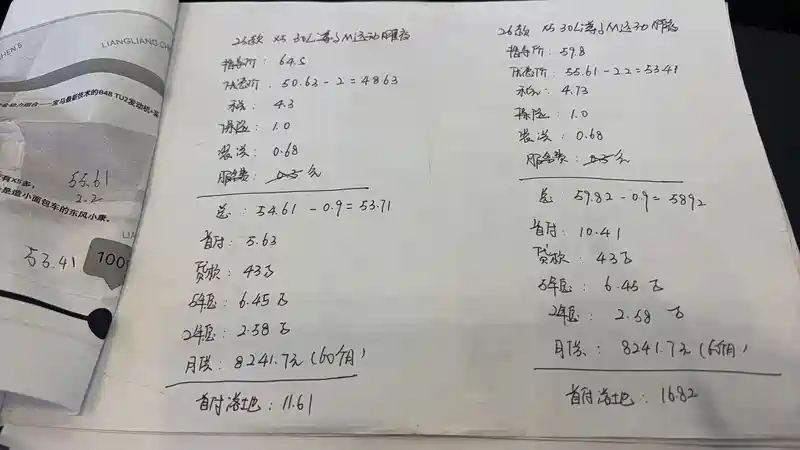 HEN 5
LIANGLIANG CH
宝马最新技术的B48 TU2发动机+采
有X5多,
是造小面包车的东风小康。
55.61
2.2
LIA
53.41
100
25款 X5 30Li 尊享M运动服装
指导价: 64.5
优惠价: 50.63-2=48.63
税: 4.3
保险: 1.0
装潢: 0.68
服务费: 0.3 免
总: 54.61-0.9=53.71
首付: 5.63
贷款: 43万
5年息: 6.45万
2年息: 2.58万
月供: 8241.7元(60个月)
首付落地: 11.61
26款 X5 30Li 尊享M运动服装
指导价: 59.8
优惠价: 55.61-2.2=53.41
税: 4.73
保险: 1.0
装潢: 0.68
服务费: 0.3 免
总 59.82-0.9=58.92
首付: 10.41
贷款: 43万
5年息: 6.45万
2年息: 2.58万
月供: 8241.7元(60个月)
首付落地: 16.82